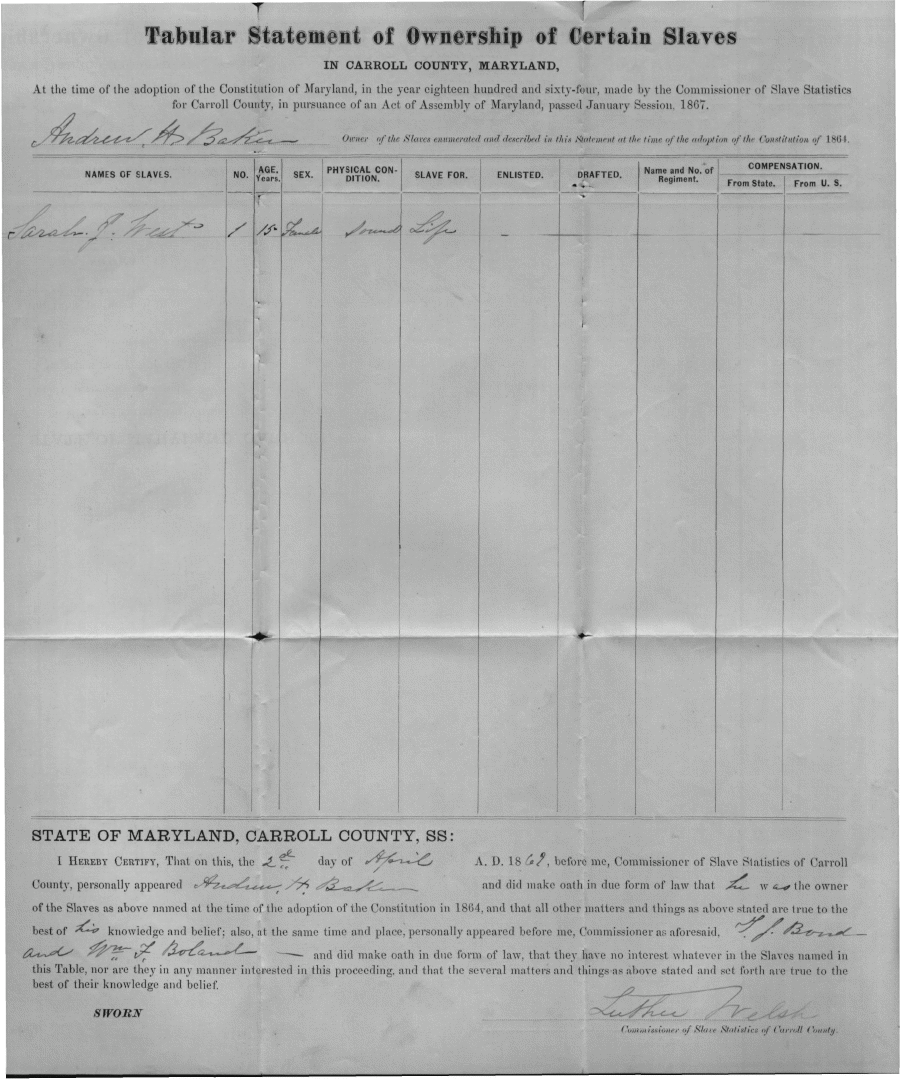 Tabular Statement of Ownership of Certain Slaves
IN CARROLL COUNTY, MARYLAND,
At the time of the adoption of the Constitution of Maryland, in the year eighteen hundred and sixty-four, made by the Commissioner of Slave Statistics
for Carroll County, in pursuance of an Act of Assembly of Maryland, passed January Session, 1867.
Andrew H. Baker Owner of the Slaves enumerated and described in this Statement at the time of the adoption of the Constitution of 1864.
NAMES OF SLAVES. NO. AGE, Years. SEX. PHYSICAL CONDITION. SLAVE FOR. ENLISTED. DRAFTED. Name and No. of Regiment. COMPENSATION. From State. From U. S.
Sarah J. West 1 15 Female Sound Life –
STATE OF MARYLAND, CARROLL COUNTY, SS:
I HEREBY CERTIFY, That on this, the 2d day of April A. D. 1869, before me, Commissioner of Slave Statistics of Carroll
County, personally appeared Andrew H. Baker and did make oath in due form of law that he was the owner
of the Slaves as above named at the time of the adoption of the Constitution in 1864, and that all other matters and things as above stated are true to the
best of his knowledge and belief; also, at the same time and place, personally appeared before me, Commissioner as aforesaid, T. J. Bond
and Wm F. Boland — and did make oath in due form of law, that they have no interest whatever in the Slaves named in
this Table, nor are they in any manner interested in this proceeding, and that the several matters and things as above stated and set forth are true to the
best of their knowledge and belief.
SWORN Luther Welsh
Commissioner of Slave Statistics of Carroll County.